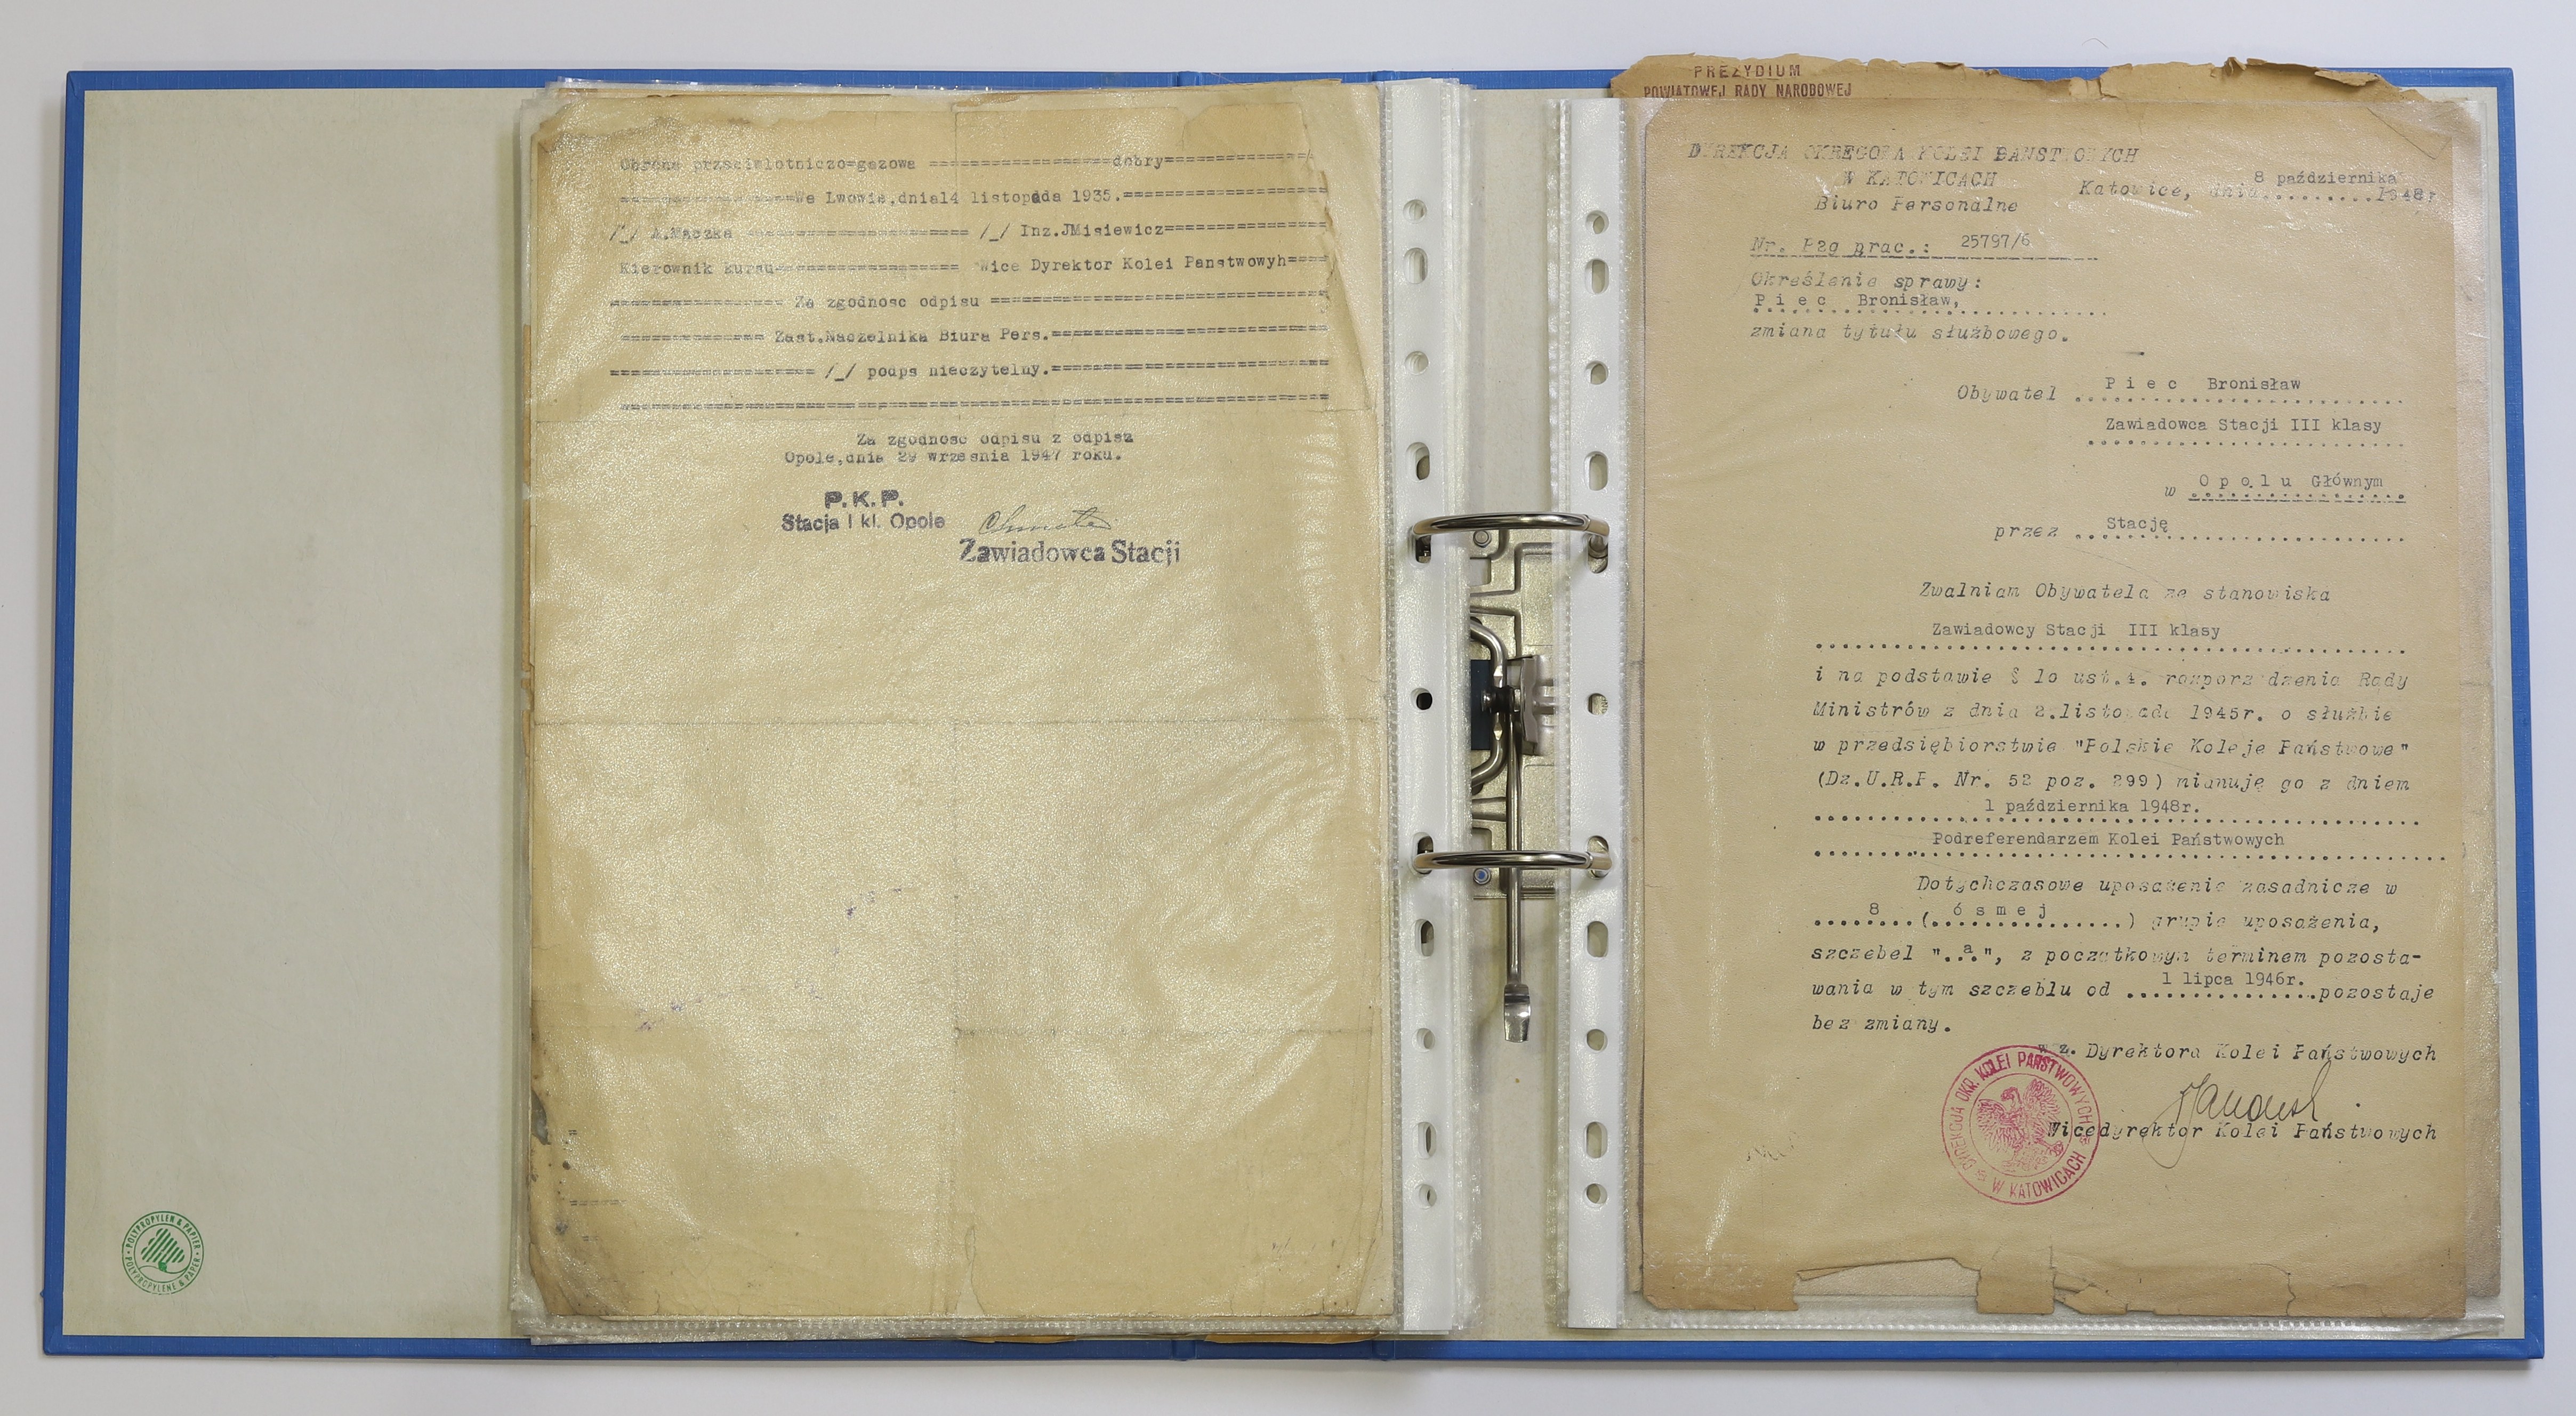 Obrona przeciwlotniczo=gazowa ==================dobry===============
=================We Lwowie,dnia14 listopada 1935.====================
/_/ A.Maczka ====================== /_/ Inz.JMisiewicz================
Kierownik kursu================== Wice Dyrektor Kolei Panstwowyh====
================= Za zgodnosc odpisu =================================
============== Zast.Naczelnika Biura Pers.===========================
==================== /_/ podps nieczytelny.===========================
======================================================================
Za zgodnosc odpisu z odpisz
Opole,dnia 29 wrzesnia 1947 roku.
P.K.P.
Stacja I kl. Opole
Zawiadowca Stacji
POLYPROPYLEN & PAPIER • POLYPROPYLENE & PAPER •
PREZYDIUM
POWIATOWEJ RADY NARODOWEJ
DYREKCJA OKRĘGOWA KOLEI PAŃSTWOWYCH
W KATOWICACH
Biuro Personalne
Katowice, dnia 8 października 1948r.
Nr. Pzo prac.: 25797/6
Określenie sprawy:
P i e c Bronisław,
zmiana tytułu służbowego.
Obywatel P i e c Bronisław
Zawiadowca Stacji III klasy
w O p o l u Głównym
przez Stację
Zwalniam Obywatela ze stanowiska
Zawiadowcy Stacji III klasy
i na podstawie § 10 ust.4. rozporządzenia Rady
Ministrów z dnia 2.listopada 1945r. o służbie
w przedsiębiorstwie "Polskie Koleje Państwowe"
(Dz.U.R.P. Nr. 52 poz. 299) mianuję go z dniem
1 października 1948r.
Podreferendarzem Kolei Państwowych
Dotychczasowe uposażenie zasadnicze w
8 (ó s m e j) grupie uposażenia,
szczebel "a", z początkowym terminem pozosta-
wania w tym szczeblu od 1 lipca 1946r. pozostaje
bez zmiany.
w z. Dyrektora Kolei Państwowych
Wicedyrektor Kolei Państwowych
DYREKCJA OKR. KOLEI PAŃSTWOWYCH W KATOWICACH